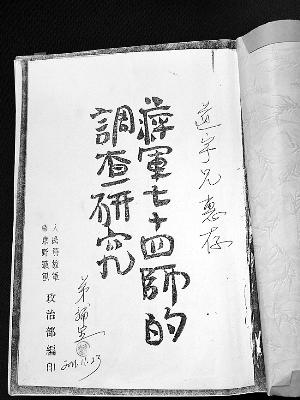 道宇兄惠存
蔣軍七十四師的
調查研究
人民解放軍
華東野戰軍
政治部編印
弟